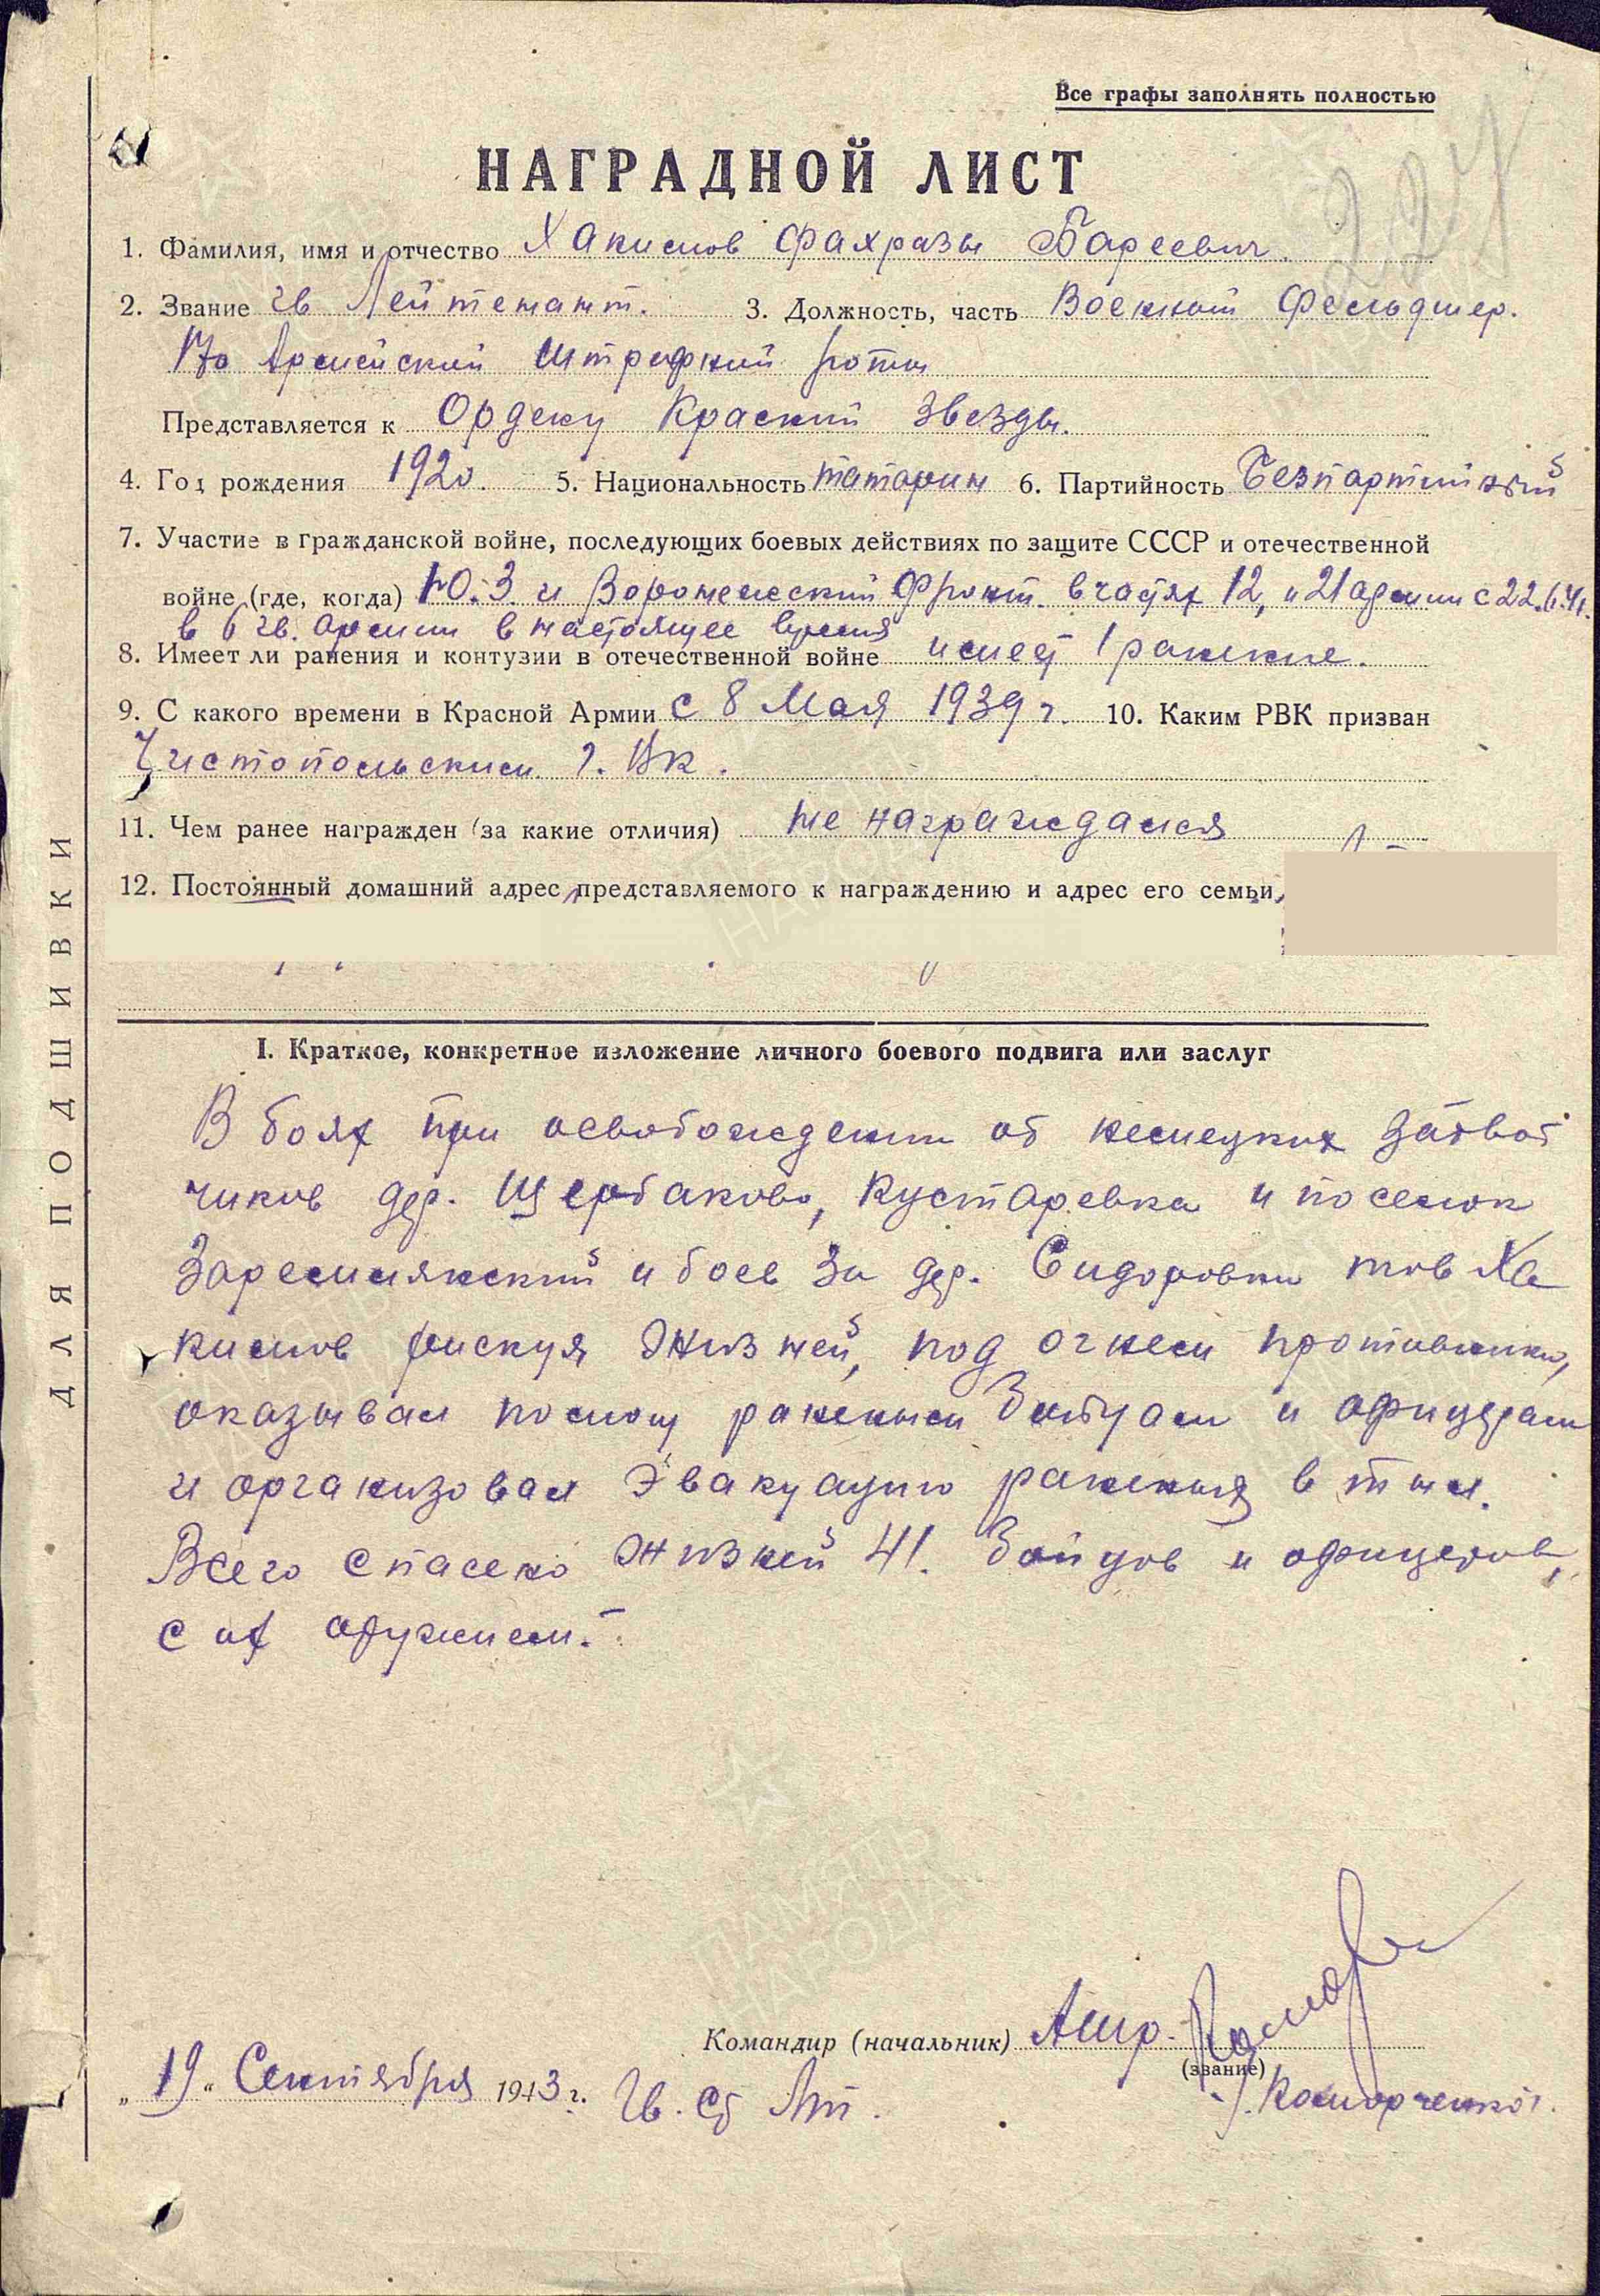 Все графы заполнять полностью
227
НАГРАДНОЙ ЛИСТ
1. Фамилия, имя и отчество Хакимов Фахразы Бареевич.
2. Звание гв Лейтенант. 3. Должность, часть Военный Фельдшер.
170 Армейский штрафной роты
Представляется к Ордену Красный Звезды.
4. Год рождения 1920. 5. Национальность татарин 6. Партийность Безпартийный
7. Участие в гражданской войне, последующих боевых действиях по защите СССР и отечественной
войне (где, когда) Ю.З и Воронежский Фронт. в частях 12, и 21 армии с 22.6.41.
в 6 гв. армии в настоящее время
8. Имеет ли ранения и контузии в отечественной войне имеет 1 ранение.
9. С какого времени в Красной Армии с 8 Мая 1939 г. 10. Каким РВК призван
Чистопольским Г.ВК.
11. Чем ранее награжден (за какие отличия) не награждался
12. Постоянный домашний адрес, представляемого к награждению и адрес его семьи,
I. Краткое, конкретное изложение личного боевого подвига или заслуг
В боях при освобождении от немецких захват
чиков дер. Щербаково, Кустаревка и поселок
и боев за дер. Сидоровки тов Ха
кимов рискуя жизней, под огнем противника,
оказывал помощ раненым бойцам и офицерам
и организовал Эвакуацию раненых в тыл.
Всего спасено жизней 41. бойцов и офицеров,
с их оружием.
Командир (начальник) АШР.
(звание)
„19" Сентября 1943 г. Гв. Ст Лт.
ДЛЯ ПОДШИВКИ
ПАМЯТЬ
НАРОДА